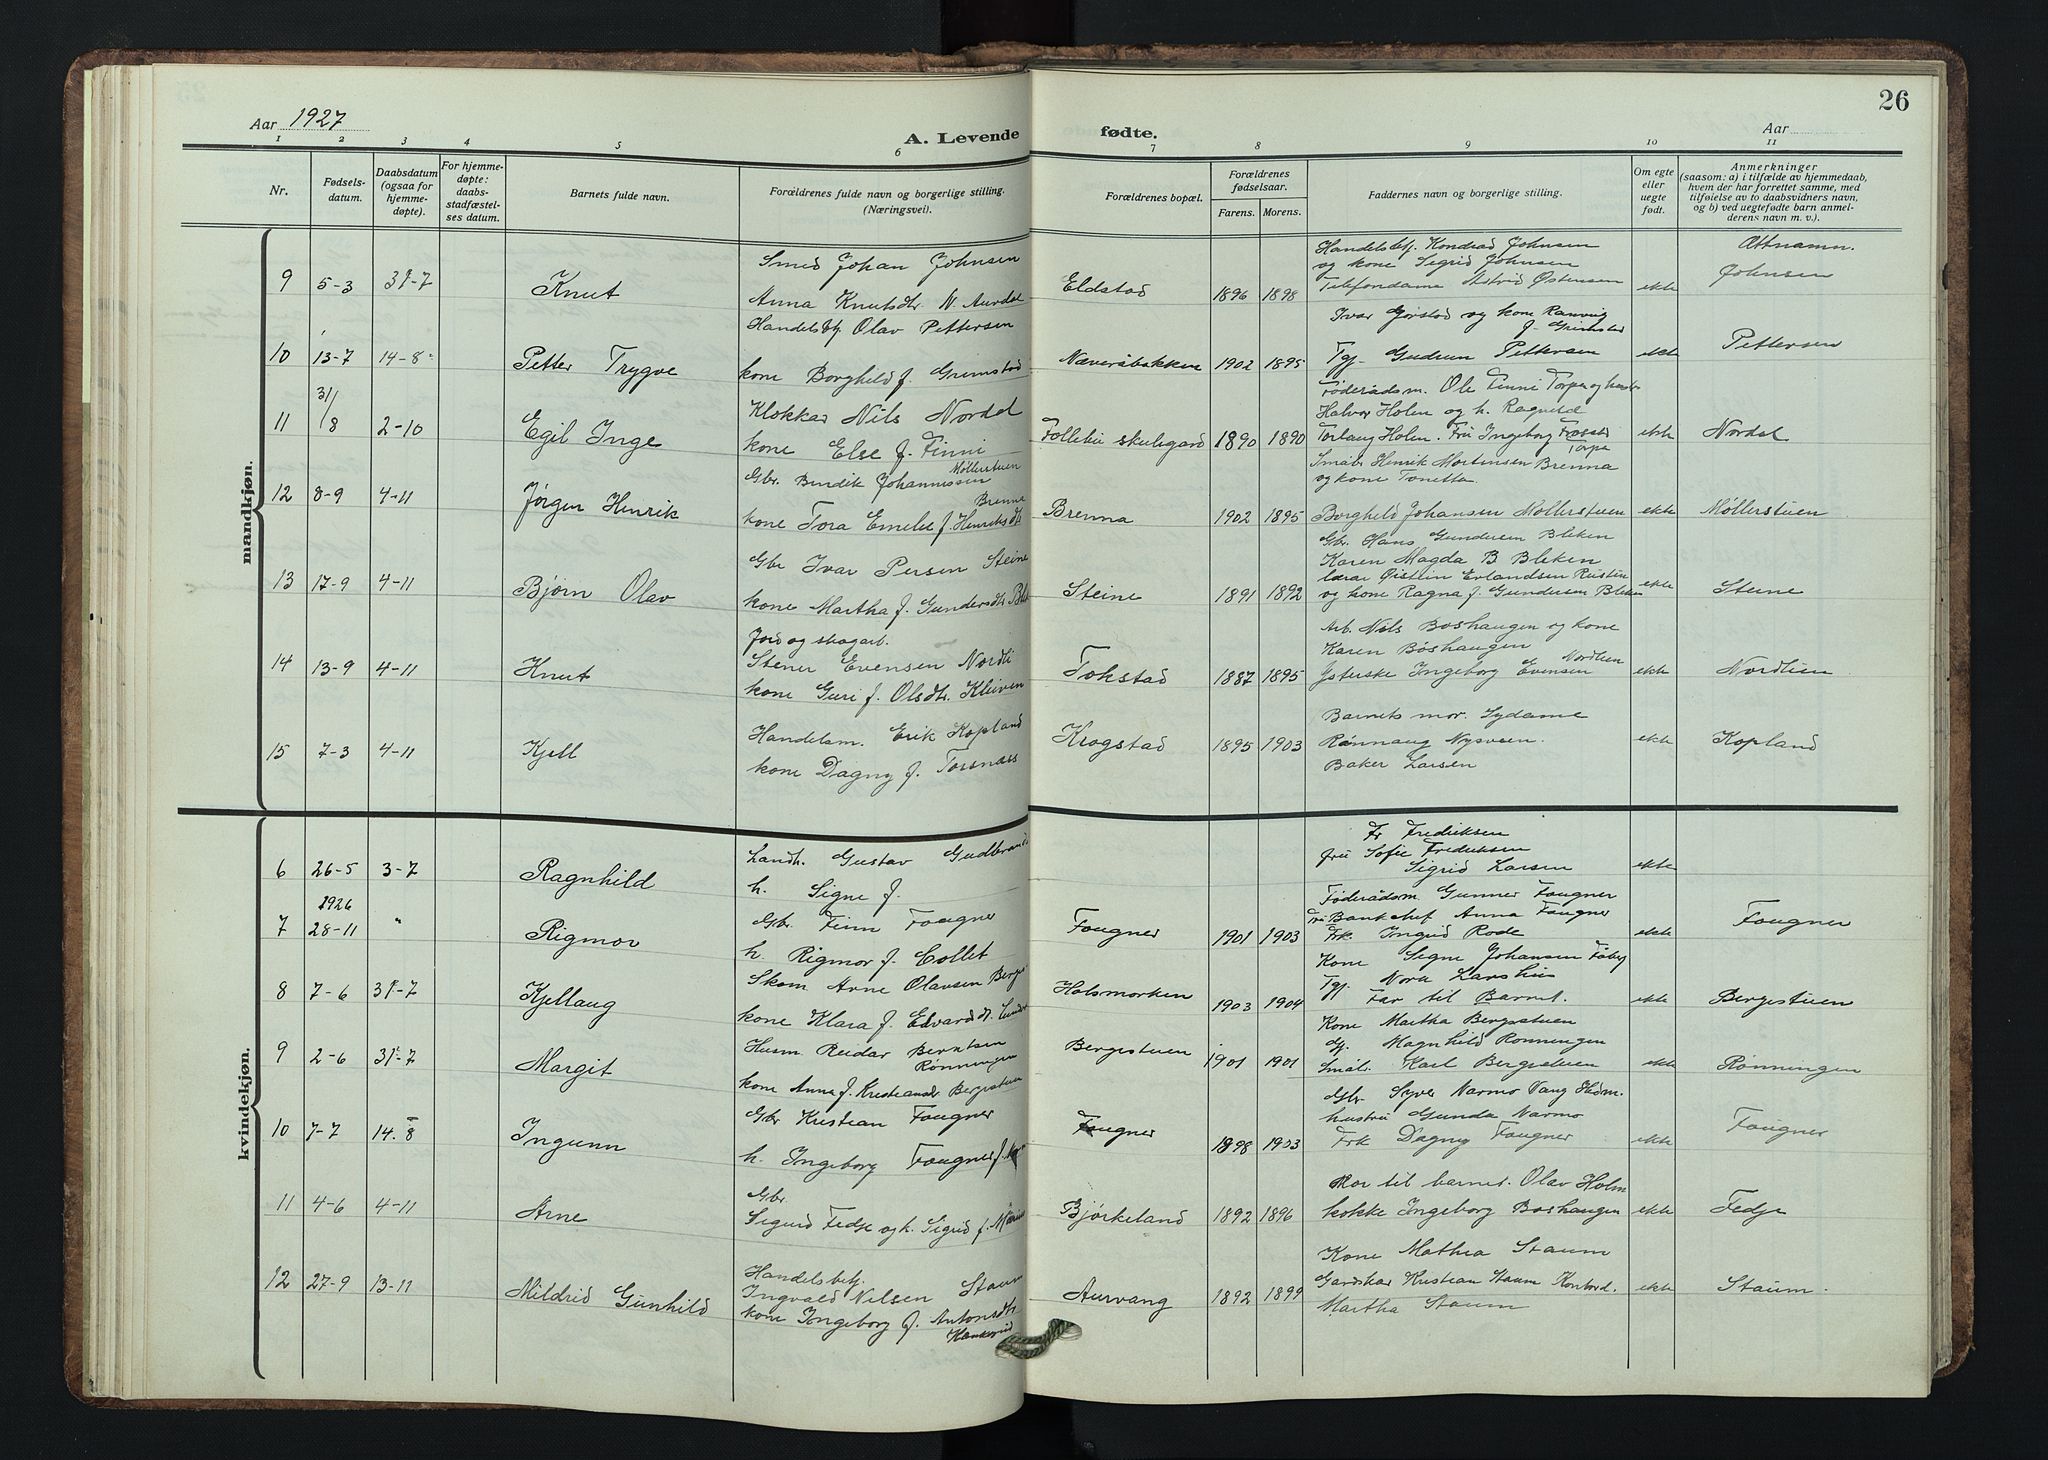 26
Aar 1927
A. Levende fødte.
Aar
1 2 3 4 5 6 7 8 9 10 11
Nr.
Fødsels-
datum.
Daabsdatum
(ogsaa for
hjemme-
døpte).
For hjemme-
døpte:
daabs-
stadfæstel-
ses datum.
Barnets fulde navn.
Forældrenes fulde navn og borgerlige stilling.
(Næringsvei).
Forældrenes bopæl.
Forældrenes
fødselsaar.
Farens. Morens.
Faddernes navn og borgerlige stilling.
Om egte
eller
uegte
født.
Anmerkninger
(saasom: a) i tilfælde av hjemmedaab,
hvem der har forrettet samme, med
tilføielse av to daabsvidners navn,
og b) ved uegtefødte barn anmel-
derens navn m. v.).
mandkjøn.
Ættnamn.
9 5-3 31-7 Knut
Smed Johan Johnsen
Anna Knutsdtr. N. Aurdal
Eldstad 1896 1898
Handelsbtj. Kondrad Johnsen
og kone Sigrid Johnsen
Telefondame Astrid Østensen
ekte Johnsen
10 13-7 14-8 Petter Trygve
Handelsbtj Olav Pettersen
kone Borghild f. Grimstad
Næversbakken 1902 1895
Ivar Gjøstad og kone Ranveig
f. Grimstad
Tgj. Gudrun Pettersen
ekte Pettersen
11 31/8 2-10 Egil Inge
Klokkar Nils Nordal
kone Else f. Finni
Follebu skulegard 1890 1890
Føderådsm. Ole Finni Torpa og hustru
Halvor Holen og h. Ragnild
Torlaug Holen. Fru Ingeborg
Torpa
ekte Nordal
12 8-9 4-11 Jørgen Henrik
Gbr. Bendik Johannessen
Møllerstuen
kone Tora Emelie f. Henriksdtr
Brenna
Brenna 1902 1895
Småbr Henrik Mortensen Brenna
og kone Tonetta
Borghild Johansen Møllerstuen
ekte Møllerstuen
13 17-9 4-11 Bjørn Olav
Gbr Ivar Persen Steine
kone Martha f. Gundersdtr
Steine 1891 1892
Gbr. Hans Gundersen Bleken
Karen Magda B Bleken
lærar Øistein Erlandsen Rustin
og kone Ragna f. Gundersen Bleken
ekte Steine
14 13-9 4-11 Knut
Jord og skogarb.
Stener Evensen Nordli
kone Guri f. Olsdtr. Kleiven
Tokstad 1887 1895
Arb. Nils Boshaugen og kone
Karen Bøshaugen
Nordlien
Ysterske Ingeborg Evensen
ekte Nordlien
15 7-3 4-11 Kjell
Handelsm. Erik Kopland
kone Dagny f. Torsnass
Krogstad 1895 1903
Barnets mor. Sydame
Rønnaug Nysveen.
Baker Larsen
ekte Kopland
kvindekjøn.
6 26-5 3-7 Ragnhild
Landh. Gustav
h. Signe f.
Fr Fredriksen
fru Sofie Fredriksen
Sigrid Larsen
ekte
7 1926 28-11 " Rigmor
Gbr. Finn Fougner
h. Rigmor f. Collet
Fougner 1901 1903
Føderådsm. Gunner Fougner
Fru Bankchef Anna Fougner
Frk Ingrid Rode
ekte Fougner
8 7-6 31-7 Kjellaug
Skom Arne Olavsen
kone Klara f. Edvardsdtr.
Holsmorken 1903 1904
Kone Signe Johansen
Tgj. Nora Larshus
Far til Barnet.
ekte Bergestuen
9 2-6 31-7 Margit
Husm Reidar Berntsen
Rønningen
kone Anna f. Kristiansdr Bergestuen
Bergestuen 1901 1901
Kone Martha Bergestuen
dj. Magnhild Ronningen
Småbr. Karl Bergestuen
ekte Rønningen
10 7-7 14.8 Ingunn
Gbr Kristian Fougner
h. Ingeborg Fougner f.
Fougner 1898 1903
Gbr Syver Narmo Vang Hedm.
hustru Gunda Narmo
Frk Dagny Fougner
ekte Fougner
11 4-6 4-11 Arne
Gbr.
Sigurd Fedje og h. Sigrid f.
Bjørkeland 1892 1896
Mor til barnet. Olav Holm
kokke Ingeborg Boshaugen
ekte Fedje
12 27-9 13-11 Mildrid Gunhild
Handelsbetj.
Ingvald Nilsen Staum
kone Ingeborg f. Antonsdtr
Aurvang 1892 1899
Kone Mathea Staum
Gardskar Kristian Staum Kontord.
Martha Staum
ekte Staum.